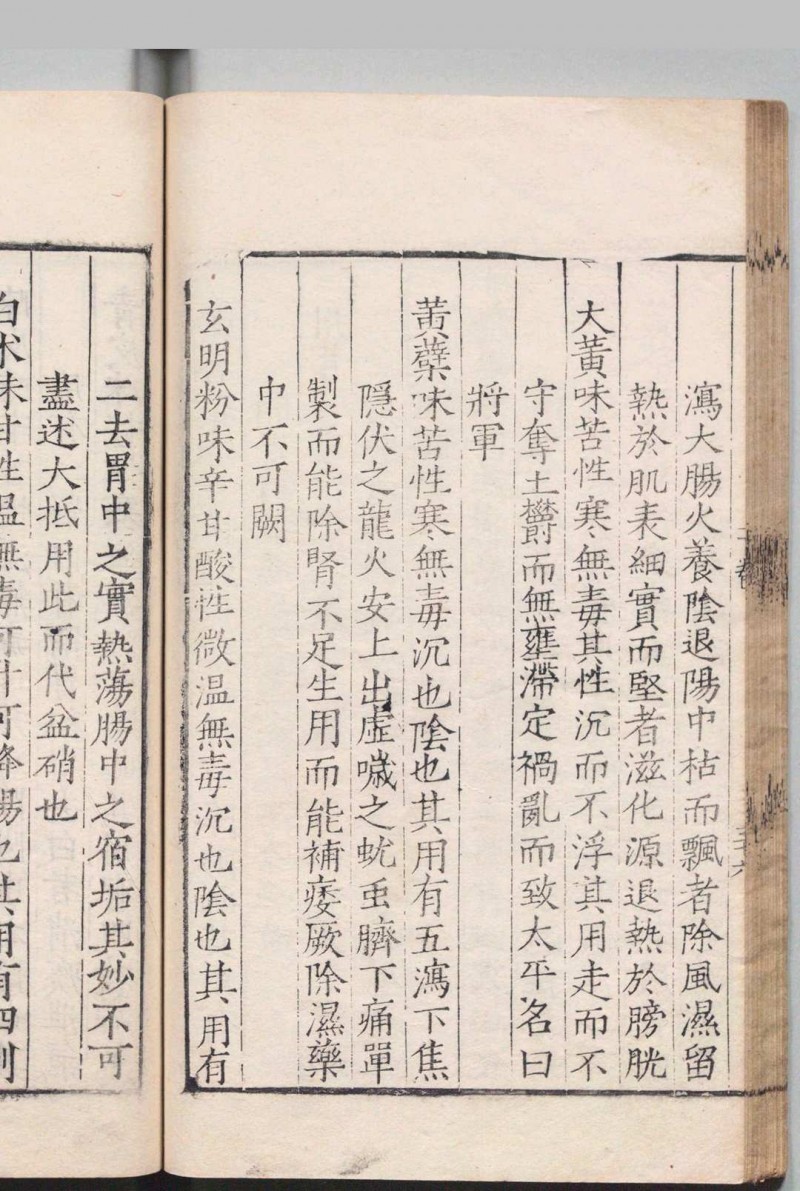 瀉大腸火養陰退陽中枯而飄者除風濕留
熱於肌表細實而堅者滋化源退熱於膀胱
大黃味苦性寒無毒其性沉而不浮其用走而不
守奪土欝而無壅滯定禍亂而致太平名曰
將軍
黃蘗味苦性寒無毒沉也陰也其用有五瀉下焦
隱伏之龍火安上出虛噦之蚘䖝臍下痛單
製而能除腎不足生用而能補痿厥除濕藥
中不可闕
玄明粉味辛甘酸性微温無毒沉也陰也其用有
二去胃中之實熱蕩腸中之宿垢其妙不可
盡述大抵用此而代盆硝也
白术味甘性温無毒可升可降陽也其用有四利